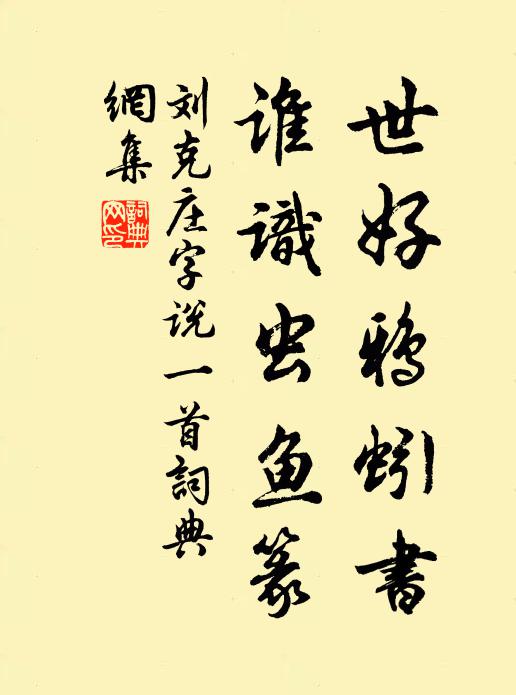 世好鸦蚓書
谁識虫鱼篆
刘克庄字说一首詞典
網集
詞典
网印